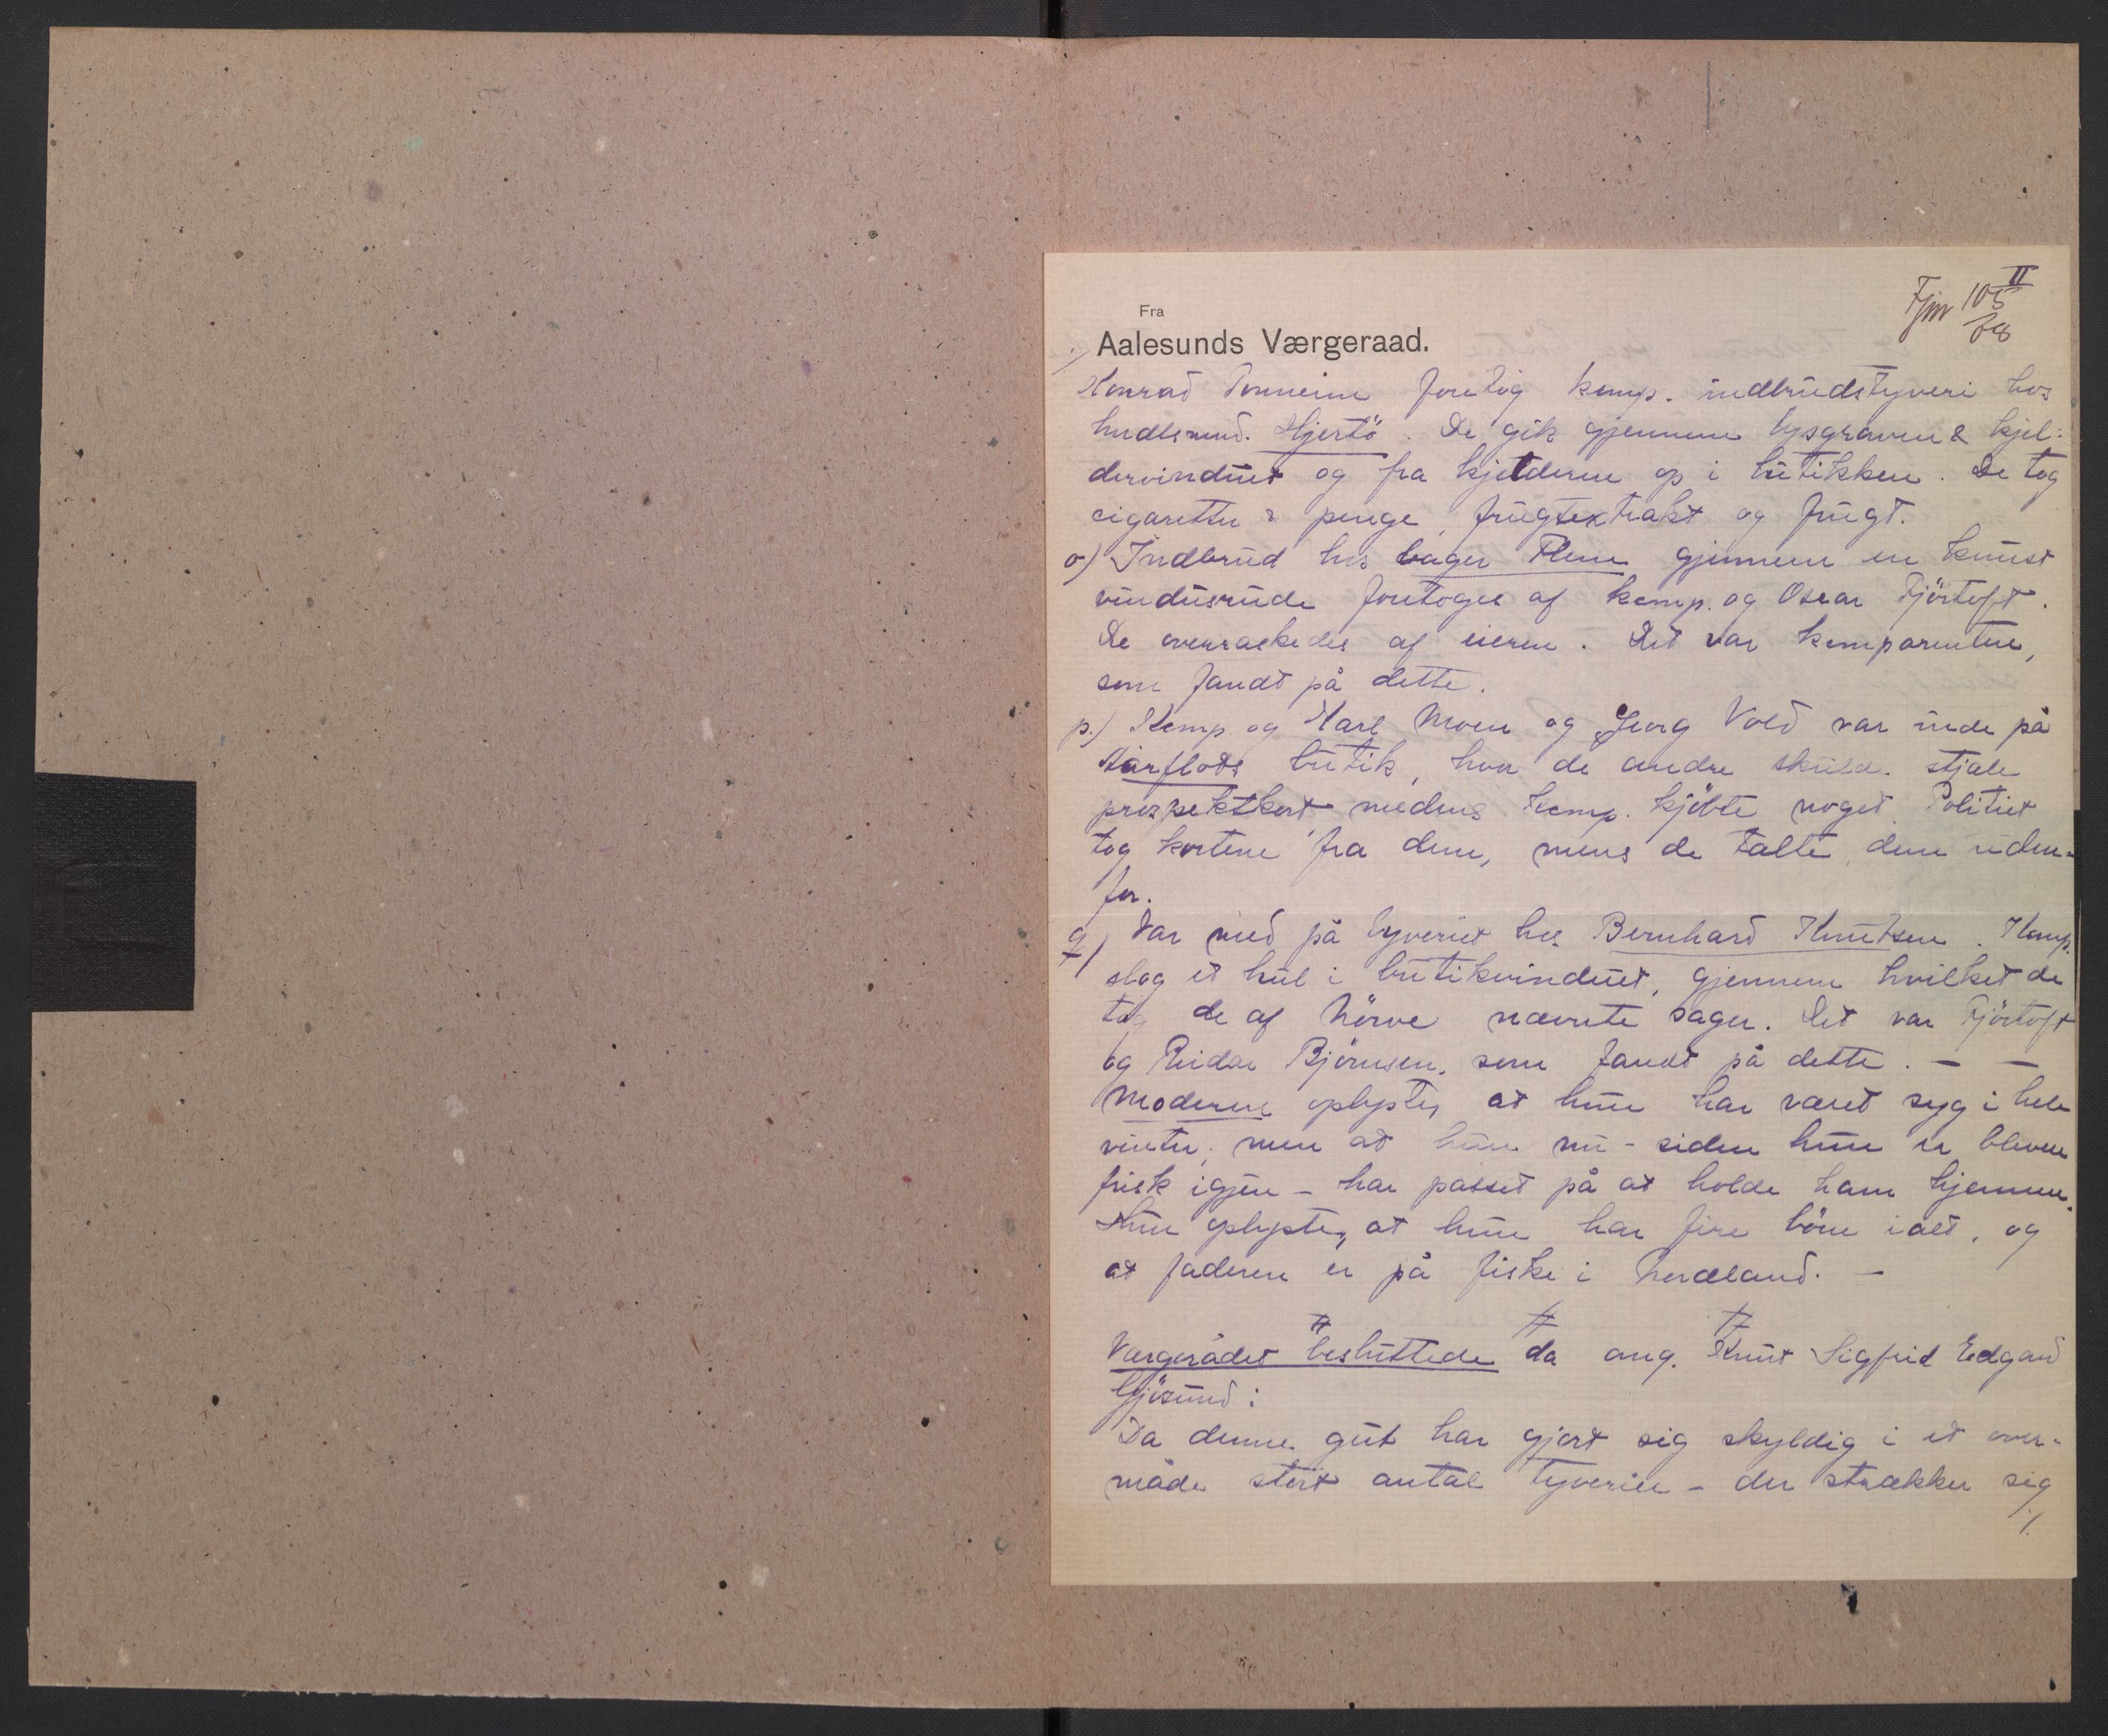 Fjnr 105 II
/08
Fra
Aalesunds Værgeraad.
Konrad foretog komp. indbrudstyveri hos
hndlsmnd. Hjertö. De gik gjennem lysgraven & kjel-
dervinduet og fra kjelderen op i butikken. De tog
cigaretter & penge, frugtextrakt og frugt.
o) Indbrud hos bager Flem gjennem en knust
vindusrude foretoges af komp. og Oscar Fjörtoft.
De overraskedes af eieren. Det var komparenten,
som fandt på dette.
p.) Komp. og Karl Moen og Georg Vold var inde på
Aarflots butik, hvor de andre skulde stjæle
prospektkort medens komp. kjöbte noget. Politiet
tog kortene fra dem, mens de talte dem uden-
for.
q) Var med på tyveriet hos Bernhard Knutsen. Komp.
slog et hul i butikvinduet, gjennem hvilket de
tog de af Nörve nævnte sager. Det var Fjörtoft
og Reidar Björnsen, som fandt på dette. — —
Moderen oplyste, at hun har været syg i hele
vinter, men at hun nu - siden hun er bleven
frisk igjen - har passet på at holde ham hjemme.
Hun oplyste, at hun har fire börn ialt, og
at faderen er på fiske i Nordland. —
Værgerådet besluttede da ang. Knut Sigfrid Edgard
Gjösund:
Da denne gut har gjort sig skyldig i et over-
måde stort antal tyverier - der strækker sig
./.